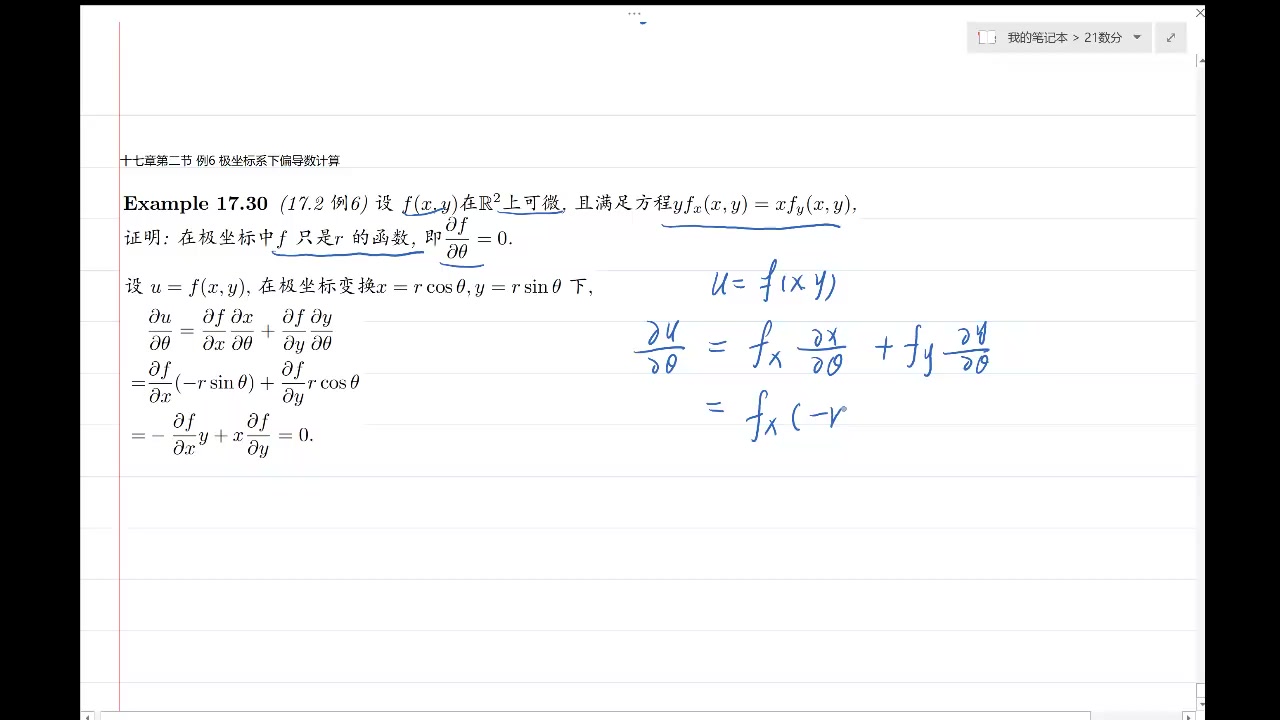 我的笔记本 > 21数分
十七章第二节 例6 极坐标系下偏导数计算
Example 17.30 (17.2 例6) 设 f(x, y)在ℝ²上可微, 且满足方程yfₓ(x, y) = xf_y(x, y),
证明: 在极坐标中f 只是r 的函数, 即 ∂f/∂θ = 0.
设 u = f(x, y), 在极坐标变换x = r cos θ, y = r sin θ 下,
u = f(x y)
∂u/∂θ = ∂f/∂x ∂x/∂θ + ∂f/∂y ∂y/∂θ
∂u/∂θ = fₓ ∂x/∂θ + f_y ∂y/∂θ
= ∂f/∂x (−r sin θ) + ∂f/∂y r cos θ
= fₓ (−r
= − ∂f/∂x y + x ∂f/∂y = 0.